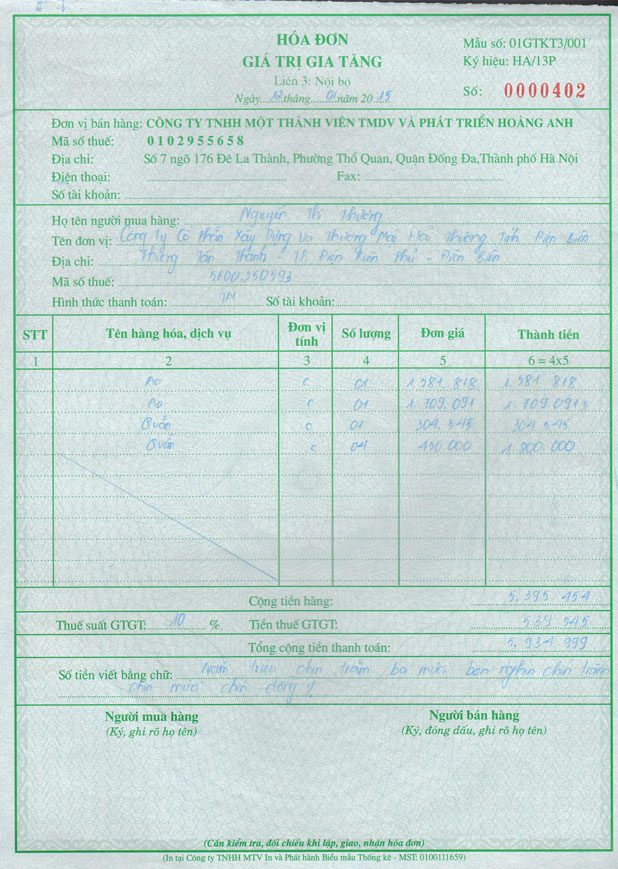 HÓA ĐƠN
GIÁ TRỊ GIA TĂNG
Liên 3: Nội bộ
Ngày....12tháng....01năm 2015
Mẫu số: 01GTKT3/001
Ký hiệu: HA/13P
Số: 0000402
Đơn vị bán hàng: CÔNG TY TNHH MỘT THÀNH VIÊN TMDV VÀ PHÁT TRIỂN HOÀNG ANH
Mã số thuế: 0102955658
Địa chỉ: Số 7 ngõ 176 Đê La Thành, Phường Thổ Quan, Quận Đống Đa,Thành phố Hà Nội
Điện thoại: Fax:
Số tài khoản:
Họ tên người mua hàng: Nguyễn Thị Thường
Tên đơn vị: Công Ty Cổ Phần Xây Dựng Và Thương Mại Hải Thường Tỉnh Điện Biên
Địa chỉ: Phường Tân Thanh - TP. Điện Biên Phủ - Điện Biên
Mã số thuế: 5600250593
Hình thức thanh toán: TM Số tài khoản:
STT Tên hàng hóa, dịch vụ Đơn vị tính Số lượng Đơn giá Thành tiền
1 2 3 4 5 6 = 4x5
Áo c 01 1.581.818 1.581.818
Áo c 01 1.709.091 1.709.091
Quần c 01 304.545 304.545
Quần c 04 450.000 1.800.000
Cộng tiền hàng: 5.395.454
Thuế suất GTGT: 10 %, Tiền thuế GTGT: 539.545
Tổng cộng tiền thanh toán: 5.934.999
Số tiền viết bằng chữ: Năm triệu chín trăm ba mươi bốn nghìn chín trăm
chín mươi chín đồng %
Người mua hàng Người bán hàng
(Ký, ghi rõ họ tên) (Ký, đóng dấu, ghi rõ họ tên)
(Cần kiểm tra, đối chiếu khi lập, giao, nhận hóa đơn)
(In tại Công ty TNHH MTV In và Phát hành Biểu mẫu Thống kê - MST: 0100111659)